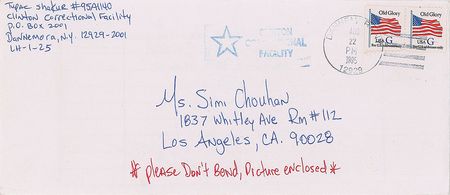 Tupac Shakur #95A1140
Clinton Correctional Facility
P.O. Box 2001
Dannemora, N.Y. 12929-2001
LH-1-25
CLINTON
CORRECTIONAL
FACILITY
AUG
22
PM
1995
12929
Old Glory
USA G
Old Glory
USA G
Ms. Simi Chouhan
1837 Whitley Ave Rm #112
Los Angeles, CA. 90028
* please Don't Bend, Picture enclosed *